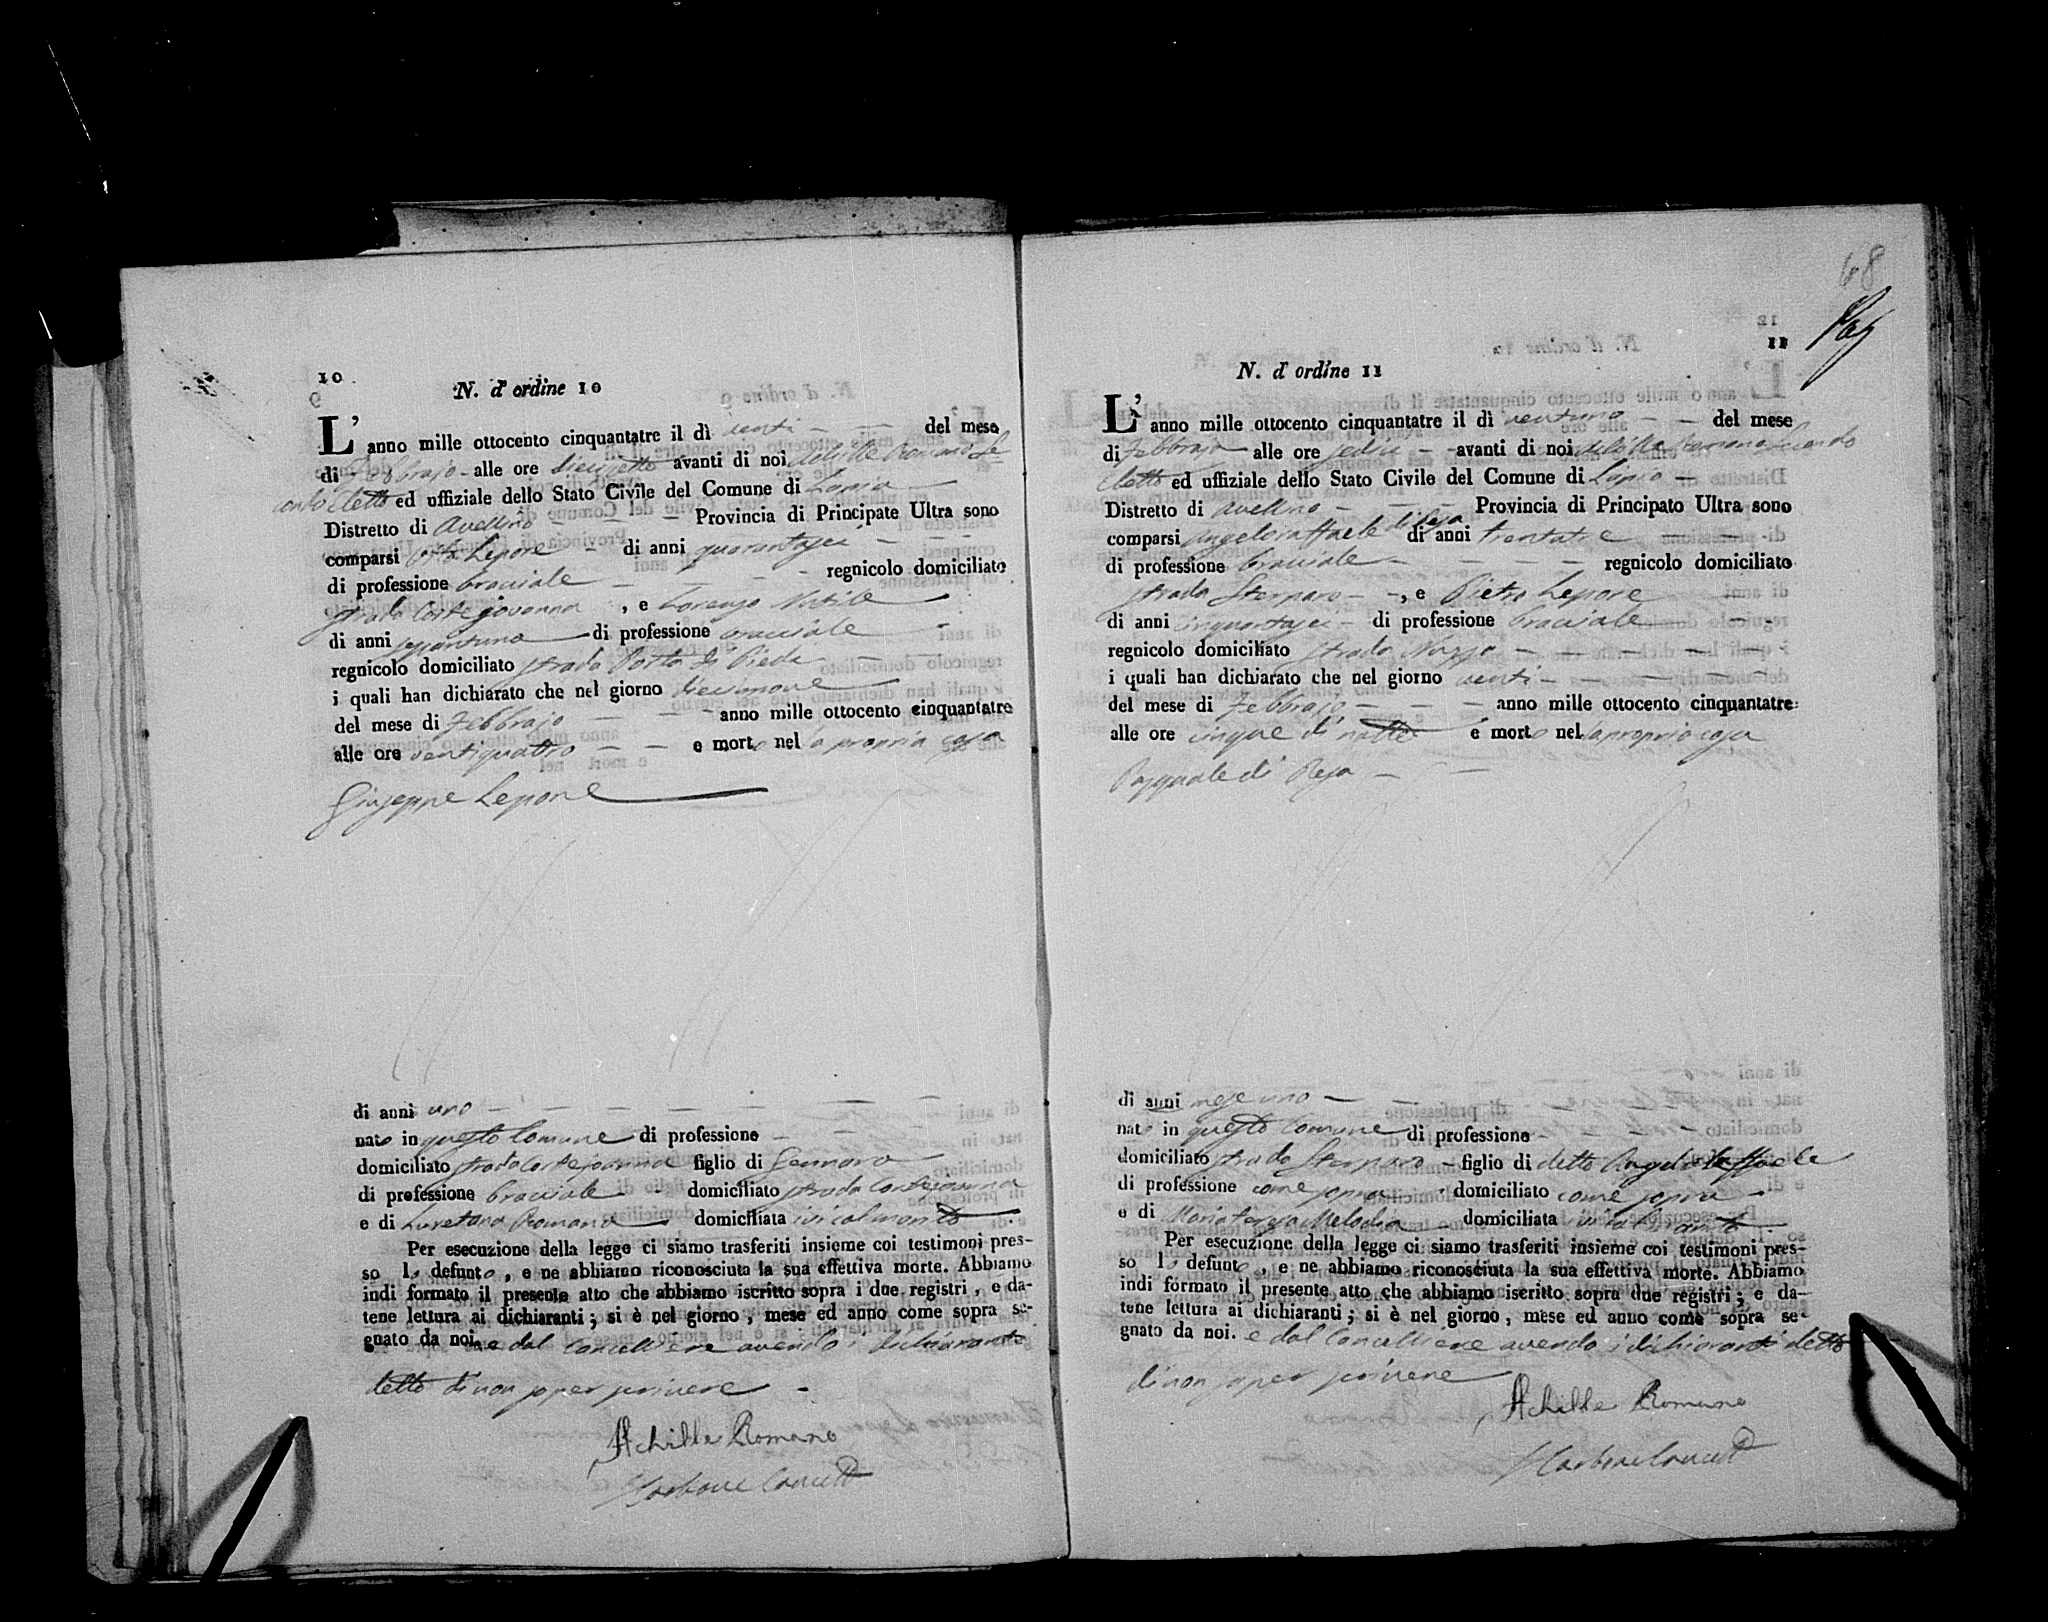 10
N. d' ordine 10
L' anno mille ottocento cinquantatre il dì venti del mese
di Febbrajo alle ore diciotto avanti di noi Achille Romano Se=
condo Eletto ed uffiziale dello Stato Civile del Comune di Lapio
Distretto di Avellino Provincia di Principate Ultra sono
comparsi Lepore di anni quarantasei
di professione bracciale regnicolo domiciliato
strada Cortegiovanna , e Lorenzo
di anni di professione bracciale
regnicolo domiciliato strada Porta di Piede
i quali han dichiarato che nel giorno diecinove
del mese di Febbrajo anno mille ottocento cinquantatre
alle ore ventiquattro e morto nel la propria casa
Giuseppe Lepore
di anni uno
nato in questo Comune di professione
domiciliato strada figlio di Gennaro
di professione bracciale domiciliato strada
e di Loretana Romano domiciliata ivi col marito
Per esecuzione della legge ci siamo trasferiti insieme coi testimoni pres-
so lo defunto , e ne abbiamo riconosciuta la sua effettiva morte. Abbiamo
indi formato il presente atto che abbiamo iscritto sopra i due registri , e da-
tene lettura ai dichiaranti ; si è nel giorno , mese ed anno come sopra se-
gnato da noi, e dal Cancelliere avendo i dichiaranti
detto di non saper scrivere
Achille Romano
Canc
68
11
N. d' ordine 11
L' anno mille ottocento cinquantatre il dì ventuno del mese
di Febbrajo alle ore sedici avanti di noi Achille Romano Secondo
Eletto ed uffiziale dello Stato Civile del Comune di Lapio
Distretto di Avellino Provincia di Principato Ultra sono
comparsi Angeloraffaele di Reja di anni trentatre
di professione bracciale regnicolo domiciliato
strada Sterparo , e Pietro Lepore
di anni cinquantasei di professione bracciale
regnicolo domiciliato strada
i quali han dichiarato che nel giorno venti
del mese di Febbrajo anno mille ottocento cinquantatre
alle ore cinque di notte é morto nel la propria casa
Pasquale di Reja
di anni mese uno
nato in questo Comune di professione
domiciliato strada Sterparo figlio di detto Angeloraffaele
di professione come sopra domiciliato come sopra
e di Mariateresa Melodia domiciliata
Per esecuzione della legge ci siamo trasferiti insieme coi testimoni pres-
so lo defunto , e ne abbiamo riconosciuta la sua effettiva morte. Abbiamo
indi formato il presente atto che abbiamo iscritto sopra due registri ; e da-
tene lettura ai dichiaranti ; si è nel giorno , mese ed anno come sopra se-
gnato da noi. e dal Cancelliere avendo i dichiaranti detto
di non saper scrivere
Achille Romano